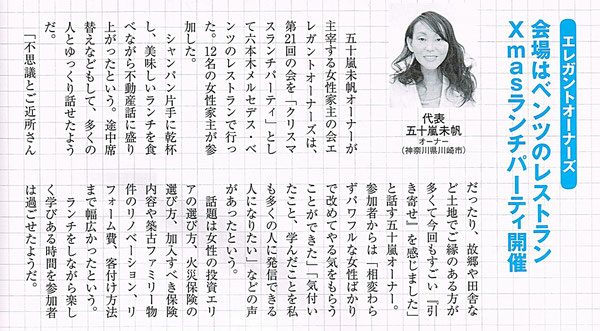 エレガントオーナーズ
会場はベンツのレストラン
Xmasランチパーティ開催
代表
五十嵐未帆
オーナー
(神奈川県川崎市)
五十嵐未帆オーナーが
主宰する女性家主の会エ
レガントオーナーズは、
第21回の会を「クリスマ
スランチパーティ」とし
て六本木メルセデス・ベ
ンツのレストランで行っ
た。12名の女性家主が参
加した。
シャンパン片手に乾杯
し、美味しいランチを食
べながら不動産話に盛り
上がったという。途中席
替えなどもして、多くの
人とゆっくり話せたよう
だ。
「不思議とご近所さん
だったり、故郷や田舎な
ど土地でご縁のある方が
多くて今回もすごい『引
き寄せ』を感じました」
と話す五十嵐オーナー。
参加者からは「相変わら
ずパワフルな女性ばかり
で改めてやる気をもらう
ことができた」「気付い
たこと、学んだことを私
も多くの人に発信できる
人になりたい」などの声
があったという。
話題は女性の投資エリ
アの選び方、火災保険の
選び方、加入すべき保険
内容や築古ファミリー物
件のリノベーション、リ
フォーム費、客付け方法
まで幅広かったという。
ランチをしながら楽し
く学びある時間を参加者
は過ごせたようだ。